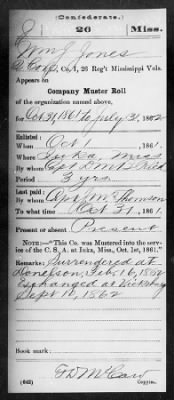 (Confederate.)
26 Miss.
Wm J Jones
Corp, Co. I, 26 Reg't Mississippi Vols.
Appears on
Company Muster Roll
of the organization named above,
for Oct 31, 1861 to July 31, 1862
Enlisted:
When Oct 1, 1861.
Where Iuka, Miss
By whom Capt D M
Period 3 yrs
Last paid:
By whom Capt J M Thomson
To what time Oct 31, 1861.
Present or absent Present
NOTE:—"This Co. was Mustered into the service of
the C. S. A. at Iuka, Miss, Oct. 1st, 1861."
Remarks: Surrendered at
Donelson, Feb 16, 1862
Exchanged at Vicksburg
Sept 12, 1862
Book mark:
(642) F D McCaw
Copyist.